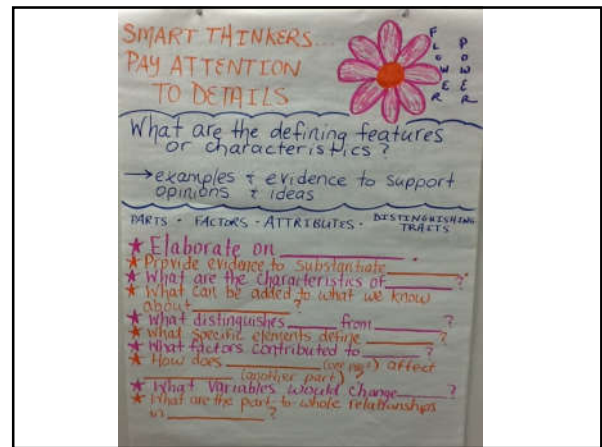 SMART THINKERS...
PAY ATTENTION
TO DETAILS
FLOWER
POWER
What are the defining features
or characteristics?
→examples & evidence to support
opinions & ideas
PARTS - FACTORS - ATTRIBUTES - DISTINGUISHING
TRAITS
★ Elaborate on ____________.
★ Provide evidence to substantiate ________.
★ What are the characteristics of ______?
★ What can be added to what we know
about __________?
★ What distinguishes _____ from _____?
★ What specific elements define _____?
★ What factors contributed to ______?
★ How does __________ (one part) affect
__________ (another part)?
★ What variables would change _____?
★ What are the part-to-whole relationships
in __________?